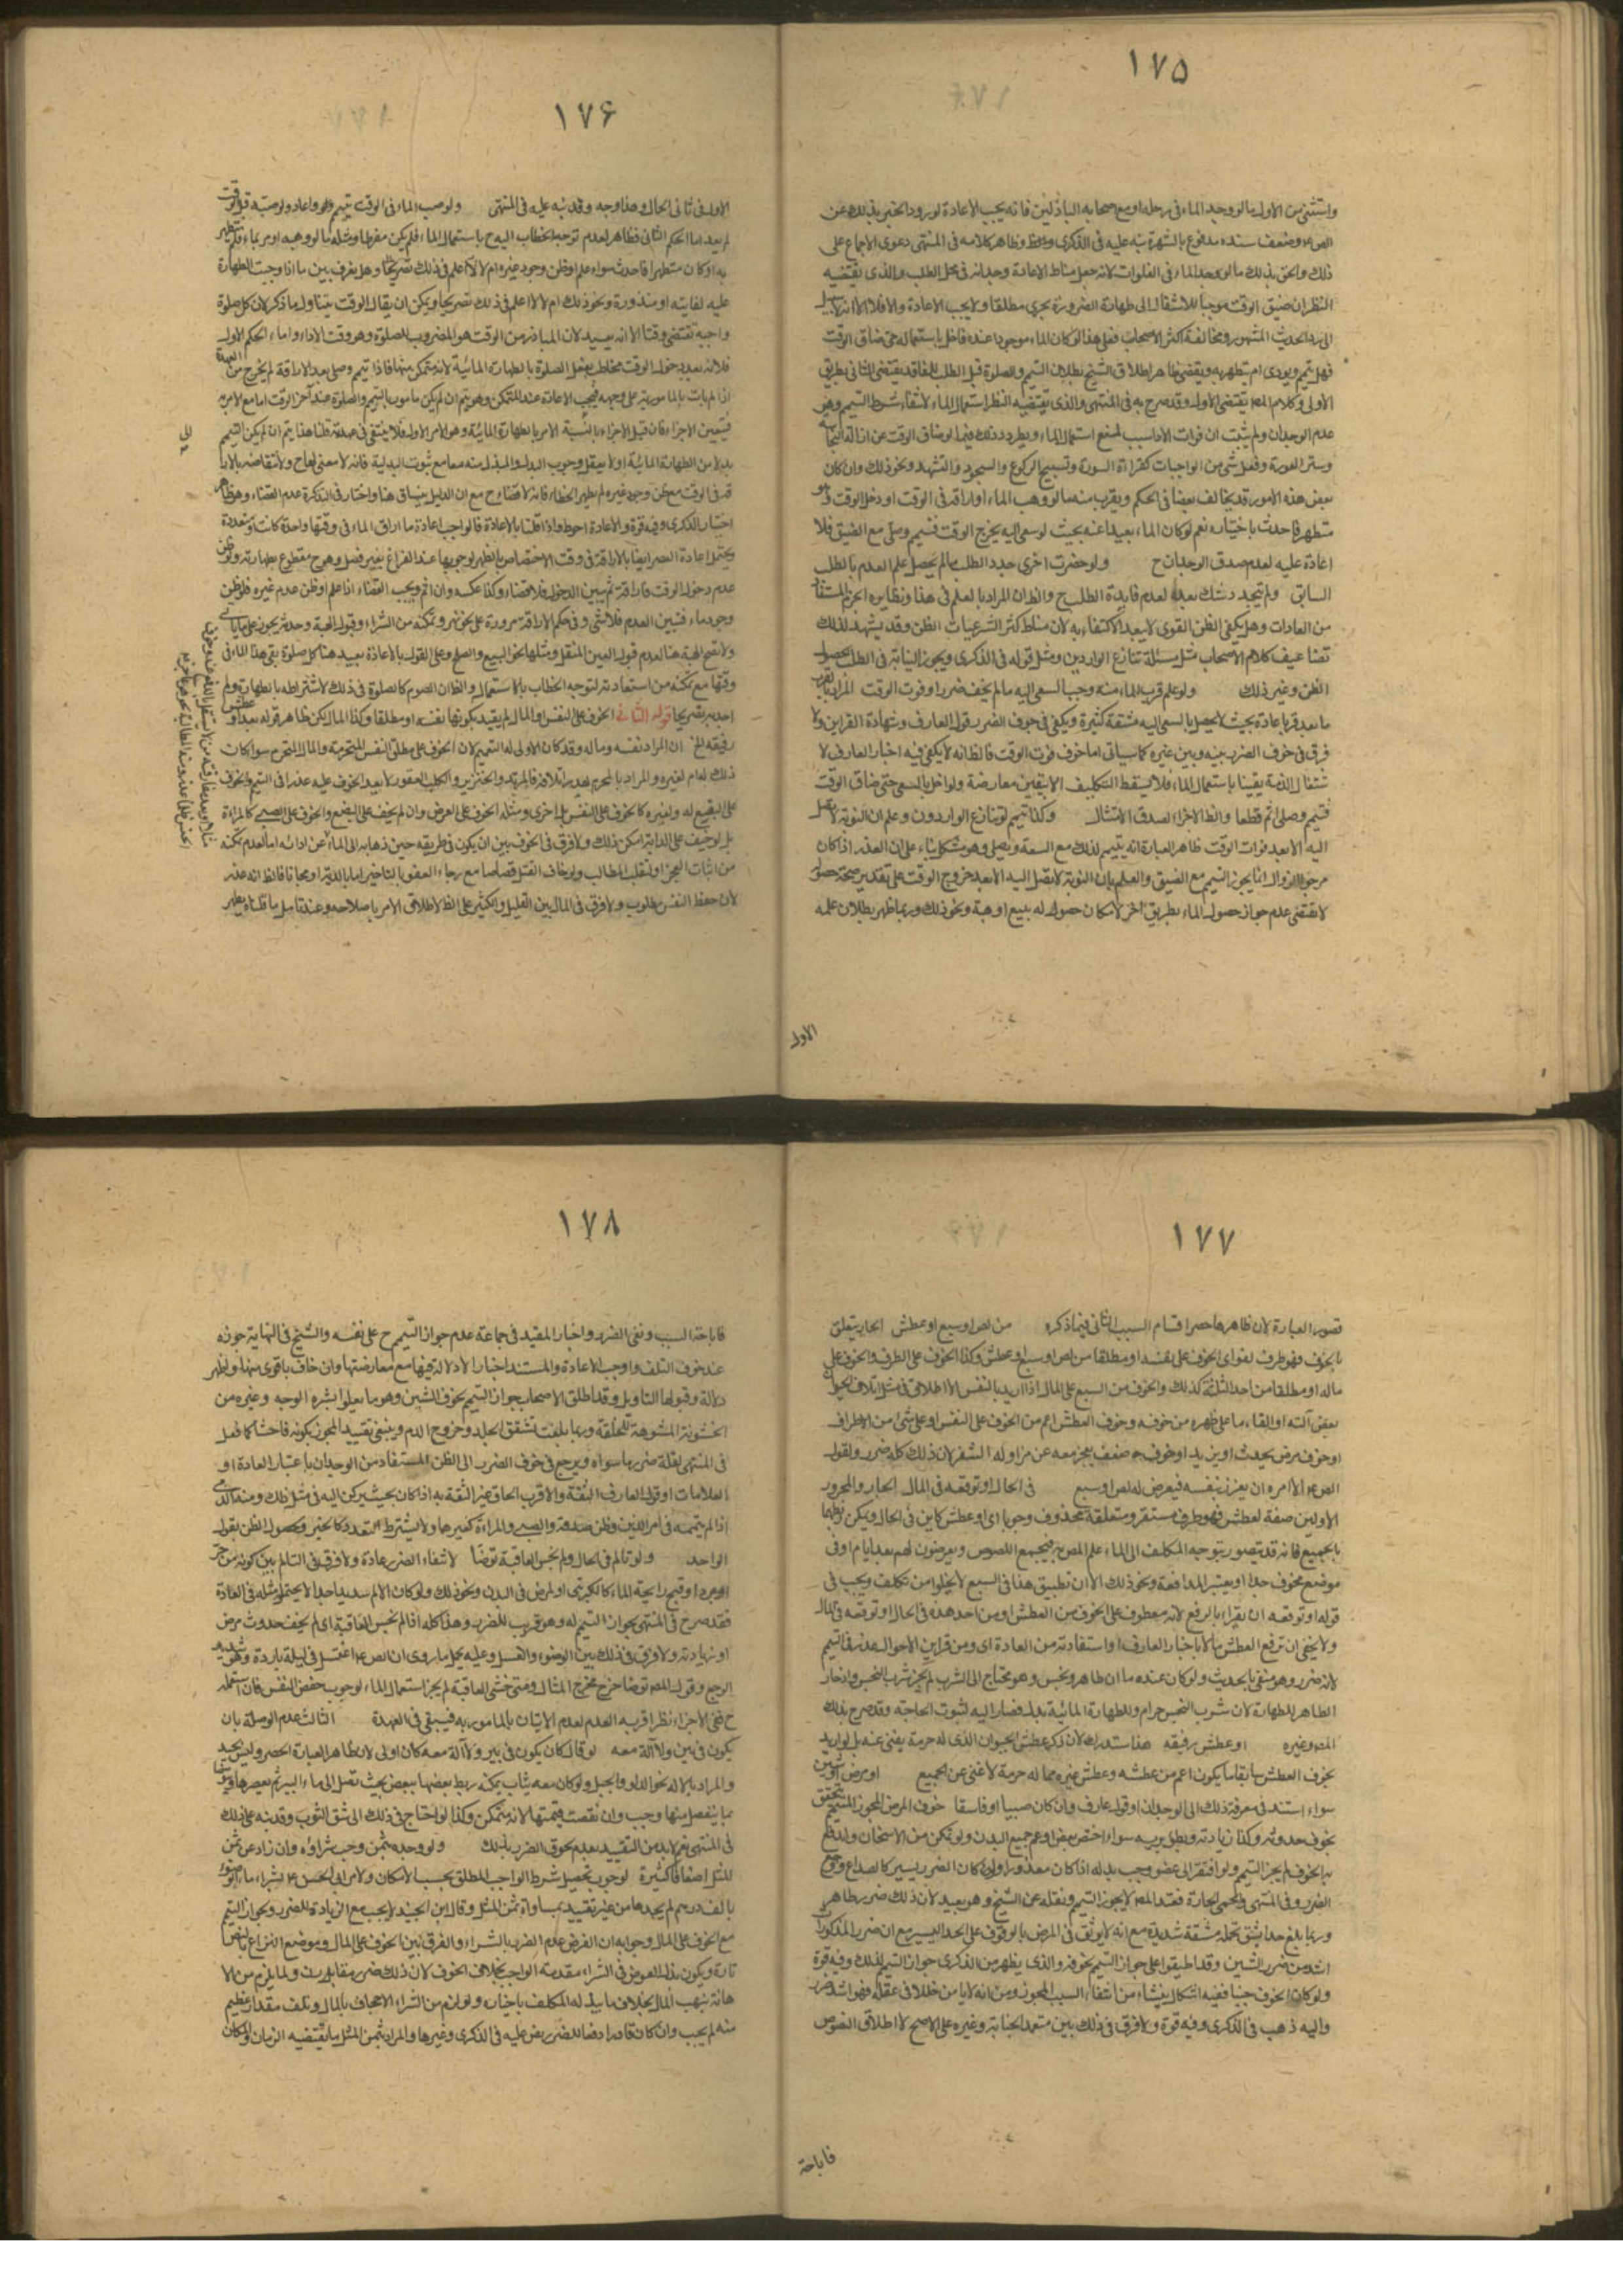 ١٧۵
واستثنى من الاول ما لو وجد الماء فى رحله او مع اصحابه الباذلين فانه يجب الاعادة لورود الخبر بذلك عن
وضعف سنده مدفوع بالشهرة نبه عليه فى الذكرى وظاهر كلامه فى المنتهى دعوى الاجماع على
ذلك والحق بذلك ما لو وجد الماء فى الفلوات لانه جعل مناط الاعادة وجدانه فى محل الطلب والذى يقتضيه
النظر ان ضيق الوقت موجبا للانتقال الى طهارة الضرورة يجرى مطلقا ولا يجب الاعادة والا فلا الا انه لا سبيل
الى رد الحديث المشهور ومخالفة اكثر الاصحاب فعلى هذا لو كان الماء موجودا عنده فاخل باستعماله حتى ضاق الوقت
فهل يتيمم ويؤدى ام يتطهر به ويقضى ظاهر اطلاق الشيخ بطلان التيمم والصلوة قبل الطلب للفاقد يقتضى الثانى بطريق
الاولى وكلام المص يقتضى الاول وقد صرح به فى المنتهى والذى يقتضيه النظر استعمال الماء لانتفاء شرط التيمم وهو
عدم الوجدان ولم يثبت ان فوات الاداء سبب لمنع استعمال الماء ويطرد ذلك فيما لو ضاق الوقت عن ازالة النجاسة
وستر العورة وفعل شئ من الواجبات كقراءة السورة وتسبيح الركوع والسجود والتشهد ونحو ذلك وان كان
بعض هذه الامور قد يخالف بعضا فى الحكم ويقرب منه ما لو وهب الماء او اراقه فى الوقت او دخل الوقت وهو
متطهر فاحدث باختياره نعم لو كان الماء بعيدا عنه بحيث لو سعى اليه يخرج الوقت فتيمم وصلى مع الضيق فلا
اعادة عليه لعدم صدق الوجدان ح ولو حضرت اخرى جدد الطلب ما لم يحصل علم العدم بالطلب
السابق ولم يتجدد شك بعده لعدم فايدة الطلب ح والظ ان المراد بالعلم فى هذا ونظايره الجزم المستفاد
من العادات وهل يكفى الظن القوى لا يبعد الاكتفاء به لان مناط اكثر الشرعيات الظن وقد يشهد لذلك
تضاعيف كلام الاصحاب مثل مسئلة تنازع الواردين ومثل قوله فى الذكرى ويجوز النيابة فى الطلب لحصول
الظن وغير ذلك ولو علم قرب الماء منه وجب السعى اليه ما لم يخف ضررا او فوت الوقت المراد بالقرب
ما يعد قربا عادة بحيث لا يحصل بالسعى اليه مشقة كثيرة ويكفى فى خوف الضرر قول العارف وشهادة القراين ولا
فرق فى خوف الضرر بينه وبين غيره كما سياتى اما خوف فوت الوقت فالظ انه لا يكفى فيه اخبار العارف لا
شتغال الذمة يقينا باستعمال الماء فلا يسقط التكليف الا بيقين معارضة ولو اخل بالسعى حتى ضاق الوقت
فتيمم وصلى اثم قطعا والظ الاجزاء لصدق الامتثال وكذا تيمم لو تنازع الواردون وعلم ان النوبة لا تصل
اليه الا بعد فوات الوقت ظاهر العبارة انه يتيمم لذلك مع السعة ويصلى وهو مشكل بناء على ان العذر اذا كان
مرجو الزوال انما يجوز التيمم مع الضيق والعلم بان النوبة لا تصل اليه الا بعد خروج الوقت على تقدير صحة حصوله
لا يقتضى عدم جواز حصول الماء بطريق آخر لامكان حصوله له ببيع او هبة ونحو ذلك وربما ظهر بطلان علمه
الاول
١٧۶
الاول فى ثانى الحال وهذا وجه وقد نبه عليه فى المنتهى ولو صب الماء فى الوقت تيمم واعاد ولو صبه قبل الوقت
لم يعد اما الحكم الثانى فظاهر لعدم توجه الخطاب اليه ح باستعمال الماء فلم يكن مفرطا ومثله ما لو وهبه او مر بماء فلم يتطهر
به او كان متطهرا فاحدث سواء علم او ظن وجود غيره ام لا لا اعلم فى ذلك تصريحا وهل يفرق بين ما اذا وجبت الطهارة
عليه لفايتة او منذورة ونحو ذلك ام لا لا اعلم فى ذلك تصريحا ويمكن ان يقال الوقت يتناول ما ذكر لان كل صلوة
واجبة تقتضى وقتا الا انه بعيد لان المتبادر من الوقت هو المضروب للصلوة وهو وقت الاداء واما الحكم الاول
فلانه بعد دخول الوقت مخاطب بفعل الصلوة بالطهارة المائية لانه متمكن منها فاذا تيمم وصلى بعد الاراقة لم يخرج من العهدة
اذ لم يات بالمامور به على وجهه فيجب الاعادة عند التمكن وهو يتم ان لم يكن مامورا بالتيمم والصلوة عند آخر الوقت اما مع الامر به
فيتعين الاجزاء فان قيل الاجزاء بالنسبة الامر بالطهارة المائية وهو الامر الاول فلا ينتفى فى عهدته قلنا هذا يتم ان لم يكن التيمم
بدلا من الطهارة المائية اذ لا يعقل وجوب البدل والمبدل منه معا مع ثبوت البدلية فانه لا معنى لها ح ولا تقاصه بالارا
قة فى الوقت مع ظن وجود غيره لم يظهر الخطاء فانه لا قضاء ح مع ان الدليل ينساق هنا واختار فى التذكرة عدم القضاء وهو ظاهر
اختيار الذكرى وفيه قوة والاعادة احوط واذا قلنا بالاعادة فالواجب اعادة ما اراق الماء فى وقتها واحدة كانت او متعددة
ويحتمل اعادة العصر ايضا بالاراقة فى وقت الاختصاص بالظهر لوجوبها عند الفراغ بغير فصل وهو ح مقطوع بطهارته ولو ظن
عدم دخول الوقت فاراقه ثم تبين الدخول فلا قضاء وكذا عكسه وان اثم ويجب القضاء اذا علم او ظن عدم غيره فلو ظن
وجود ماء فتبين العدم فلا شئ وفى حكم الاراقة مروره على نحو نهر وتمكنه من الشراء وقبول الهبة وحدثه
ولا تصح الهبة هنا لعدم قبول العين المنتقل ومثلها نحو البيع والصلح وعلى القول بالاعادة يعيد هنا كل صلوة بقى هذا الماء فى
وقتها مع تمكنه من استعادته لتوجه الخطاب بالاستعمال والظ ان الصوم كالصلوة فى ذلك لاشتراطه بالطهارة ولم
اجد به تصريحا قوله الثانى الخوف على النفس او المال لم يقيد بكونها نفسه او مطلقا وكذا المال لكن ظاهر قوله بعد او عطش
رفيقه الخ ان المراد نفسه وماله وقد كان الاولى له التعميم لان الخوف على مطلق النفس المحترمة والمال المحترم سواء كان
ذلك له ام لغيره والمراد بالمحترم ما يهدر اتلافه فالمرتد والخنزير والكلب العقور لا يعد الخوف عليه عذرا فى التيمم والخوف
على البضع له ولغيره كالخوف على النفس بل احرى ومثله الخوف على العرض وان لم يخف على البضع والخوف على الصبى كالمراة
بل لو خيف على الدابة امكن ذلك ولا فرق فى الخوف بين ان يكون فى طريقه حين ذهابه الى الماء عن ادائه اما لعدم تمكنه
من اثبات العجز او لتغلب المطالب ولو خاف القتل قصاصا مع رجاء العفو بالتاخير اما بالدية او مجانا فالظ انه عذر
لان حفظ النفس مطلوب ولا فرق فى المال بين القليل والكثير على الظ لاطلاق الامر باصلاحه وعند تامل ما قلناه يظهر
١٧٧
قصور العبارة لان ظاهرها حصر اقسام السبب الثانى فيما ذكره من لص او سبع او عطش الجار يتعلق
بالخوف فهو ظرف لغو اى الخوف على نفسه او مطلقا من لص او سبع او عطش وكذا الخوف على الطرف والخوف على
ماله او مطلقا من احد الثلثة كذلك والخوف من السبع على المال اذا اريد بالنفس الاطلاق فى مثل اتلاف الحيوان
بعض آلته او القاء ما على ظهره من خوفه وخوف العطش اعم من الخوف على النفس او على شئ من الاطراف
او خوف مرض يحدث او يزيد او خوف ضعف يعجز معه عن مزاولة السفر لان ذلك كله ضرر ولقول
الص ع لا آمره ان يغرر بنفسه فيعرض له لص او سبع فى الحال او توقعه فى المال الجار والمجرور
الاولين صفة لعطش فهو ظرف مستقر ومتعلقه محذوف وجوبا اى او عطش كاين فى الحال ويمكن ربطهما
بالجميع فانه قد يتصور بتوجه المكلف الى الماء علم اللص به فيجمع اللصوص ويعرضون لهم بعد ايام او فى
موضع مخوف جدا ويعتبر المدافعة ونحو ذلك الا ان تطبيق هذا فى السبع لا يخلوا من تكلف ويجب فى
قوله او توقعه ان يقراء بالرفع لانه معطوف على الخوف من العطش او من احد هذه فى الحال او توقعه فى المال
ولا يخفى ان توقع العطش مالا باخبار العارف او استفادته من العادة اى ومن قراين الاحوال عذر فى التيمم
لانه ضرر وهو منفى بالحديث ولو كان عنده ماان طاهر ونجس وهو محتاج الى الشرب لم يجز شرب النجس وادخار
الطاهر للطهارة لان شرب النجس حرام وللطهارة المائية بدل فصار اليه لثبوت الحاجة وقد صرح بذلك
المص وغيره او عطش رفيقه هذا مستدرك لان ذكر عطش الحيوان الذى له حرمة يغنى عنه بل لو اريد
بخوف العطش سابقا ما يكون اعم من عطشه وعطش غيره مما له حرمة لاغنى عن الجميع او مرض او شين
سواء استند فى معرفة ذلك الى الوجدان او قول عارف وان كان صبيا او فاسقا خوف المرض المجوز للتيمم يتحقق
بخوف حدوثه وكذا زيادته وبطؤ برئه سواء اختص ببعض او عم جميع البدن ولو تمكن من الاسخان ولم يظن
به الخوف لم يجز التيمم ولو افتقر الى عضو وجب بذله اذا كان معذورا ولو كان الضرر يسيرا كالصداع ووجع
الضرس وفى المنتهى والحمى الحارة فعند المص لا يجوز التيمم ونقله عن الشيخ وهو بعيد لان ذلك ضرر ظاهر
وربما بلغ حدا يشق تحمله مشقة شديدة مع انه لا يوثق فى المرض بالوقوف على الحد اليسير مع ان ضرر المذكورات
اشد من ضرر الشين وقد اطبقوا على جواز التيمم بخوفه والذى يظهر من الذكرى جواز التيمم لذلك وفيه قوة
ولو كان الخوف جبنا ففيه اشكال ينشاء من انتفاء السبب المجوز ومن انه لا يامن خللا فى عقله فهو اشد ضررا
واليه ذهب فى الذكرى وفيه قوة ولا فرق فى ذلك بين متعمد الجنابة وغيره على الاصح لاطلاق النصوص
فاباحة
١٧٨
فاباحة السبب ونفى الضرر واخبار المفيد فى جماعة عدم جواز التيمم ح على نفسه والشيخ فى النهاية جوزه
عند خوف التلف واوجب الاعادة والمستند اخبار لا دلالة فيها مع معارضتها وان خاف باقوى منها واظهر
دلالة وقبولها التاويل وقد اطلق الاصحاب جواز التيمم بخوف الشين وهو ما يعلوا بشرة الوجه وغيره من
الخشونة المشوهة للخلقة وربما بلغت تشقق الجلد وخروج الدم وينبغى تقييد المجوز بكونه فاحشا كما فعل
فى المنتهى لقلة ضرر ما سواه ويرجع فى خوف الضرر الى الظن المستفاد من الوجدان باعتبار العادة او
العلامات او قول العارف الثقة والاقرب الحاق غير الثقة به اذا كان بحيث يركن اليه فى مثل ذلك ومنه الذمى
اذا لم يتهمه فى امر الدين وظن صدقه والصبى والمراة كغيرها ولا يشترط التعدد كالخبر وحصول الظن بقول
الواحد ولو تالم فى الحال ولم يخش العاقبة توضا لانتفاء الضرر عادة ولا فرق فى التالم بين كونه من حر
او برد او قبح رايحة الماء كالكبريتى او لمرض فى البدن ونحو ذلك ولو كان الالم شديدا جدا لا يحتمل مثله فى العادة
فقد صرح فى المنتهى بجواز التيمم له وهو قريب للضرر وهذا كله اذا لم يخش العاقبة اى لم يخف حدوث مرض
او زيادته ولا فرق فى ذلك بين الوضوء والغسل وعليه يحمل ما روى ان الص ع اغتسل فى ليلة باردة وهو شديد
الوجع وقول المص توضا خرج مخرج المثال ومتى خشى العاقبة لم يجز استعمال الماء لوجوب حفظ النفس فان استعمله
ح ففى الاجزاء نظر اقربه العدم لعدم الاتيان بالمامور به فيبقى فى العهدة الثالث عدم الوصلة بان
يكون فى بئر ولا آلة معه لو قال كان يكون فى بير ولا آلة معه كان اولى لان ظاهر العبارة الحصر وليس بجيد
والمراد بالآلة نحو الدلو والحبل ولو كان معه ثياب يمكنه ربط بعضها ببعض بحيث تصل الى ماء البير ثم يعصرها ويتوضا
بما ينفصل منها وجب وان نقصت قيمتها لانه متمكن وكذا لو احتاج فى ذلك الى شق الثوب وقد نبه على ذلك
فى المنتهى نعم لا بد من التقييد بعدم خوف الضرر بذلك ولو وجده بثمن وجب شراؤه وان زاد عن ثمن
المثل اضعافا كثيرة لوجوب تحصيل شرط الواجب المطلق بحسب الامكان ولامر ابى الحسن ع بشراء ماء الوضوء
بالف درهم لم يجدها من غير تقييد بمساواة ثمن المثل وقال ابن الجنيد لا يجب مع الزيادة للضرر ولجواز التيمم
مع الخوف على المال وجوابه ان الفرض عدم الضرر بالشراء والفرق بين الخوف على المال وموضع النزاع بالنص
تارة وبكون بذل العوض فى الشراء مقدمة الواجب بخلاف الخوف لان ذلك ضرر ولما يلزم من الا
هانة بنهب المال بخلاف ما يبذله المكلف باختياره ولو لزم من الشراء الاجحاف بالمال وتلف مقدار عظيم
منه لم يجب وان كان قادرا دفعا للضرر نص عليه فى الذكرى وغيرها والمراد بثمن المثل ما يقتضيه الزمان والمكان